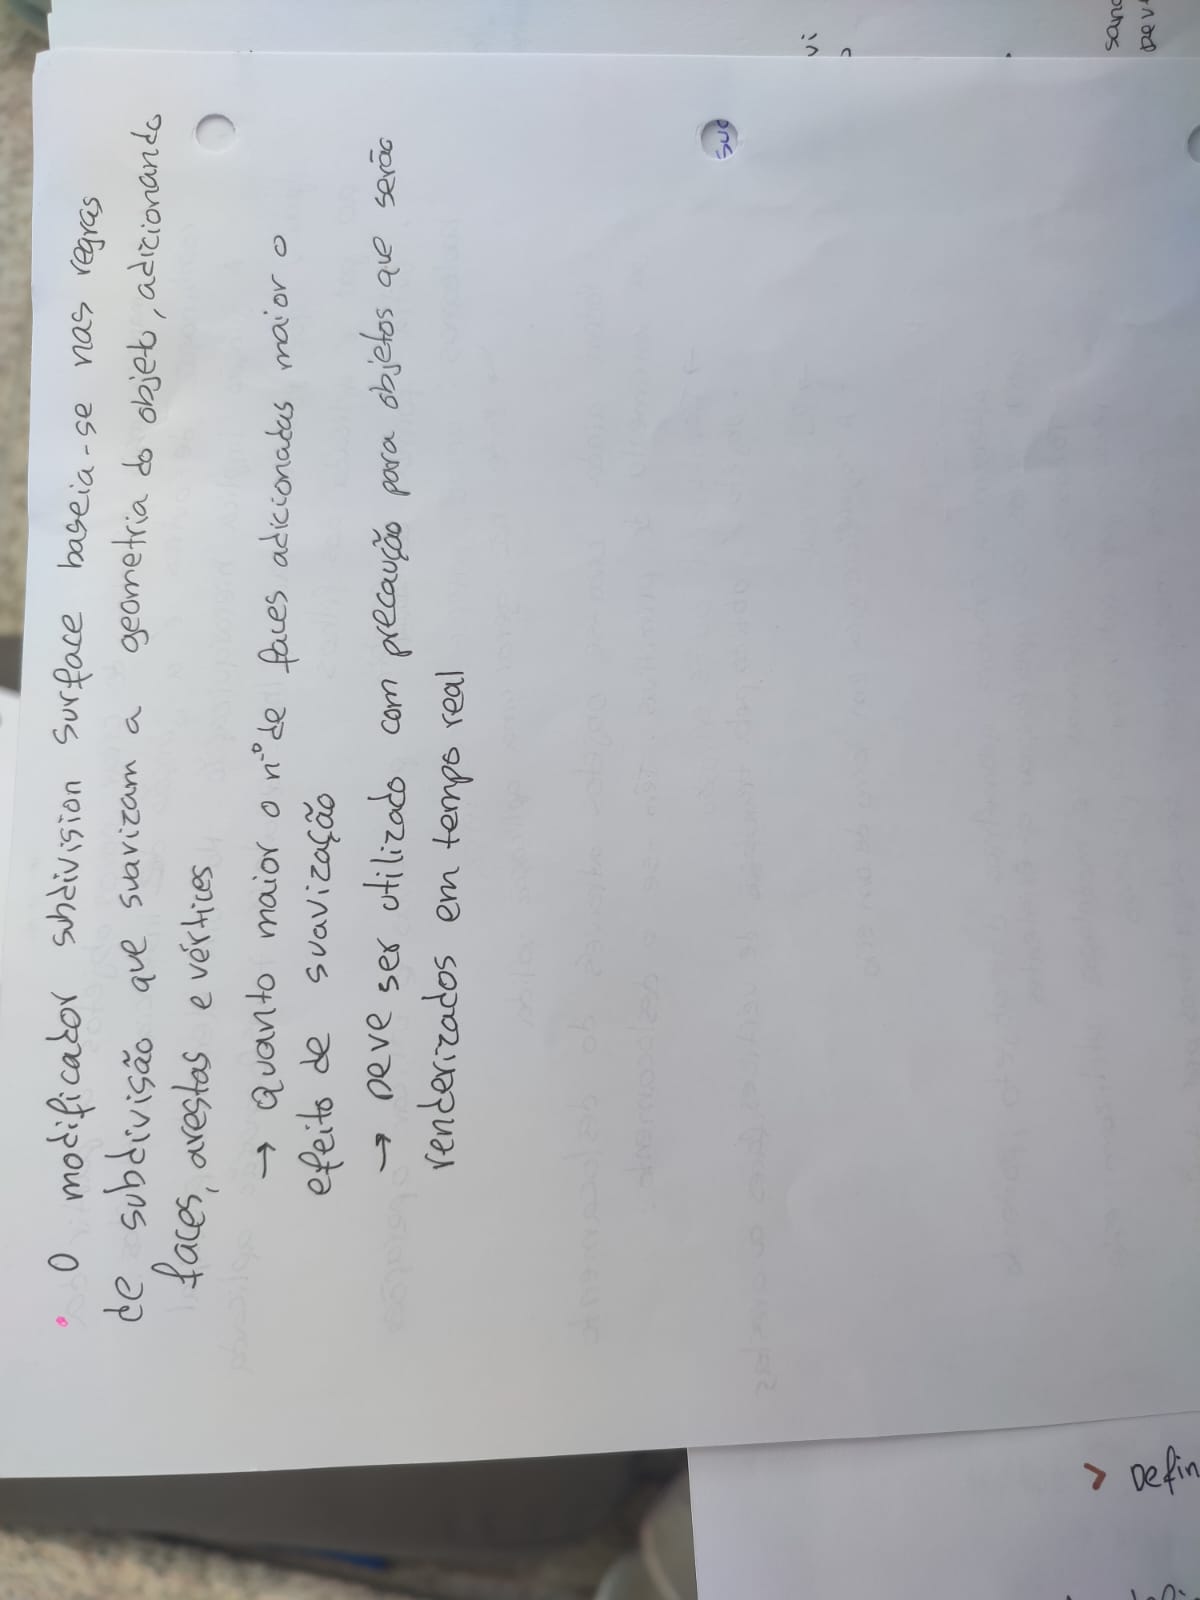 • O modificador subdivision surface baseia-se nas regras
de subdivisão que suavizam a geometria do objeto, adicionando
faces, arestas e vértices
→ Quanto maior o nº de faces adicionadas maior o
efeito de suavização
→ Deve ser utilizado com precaução para objetos que serão
renderizados em tempo real
> Defin